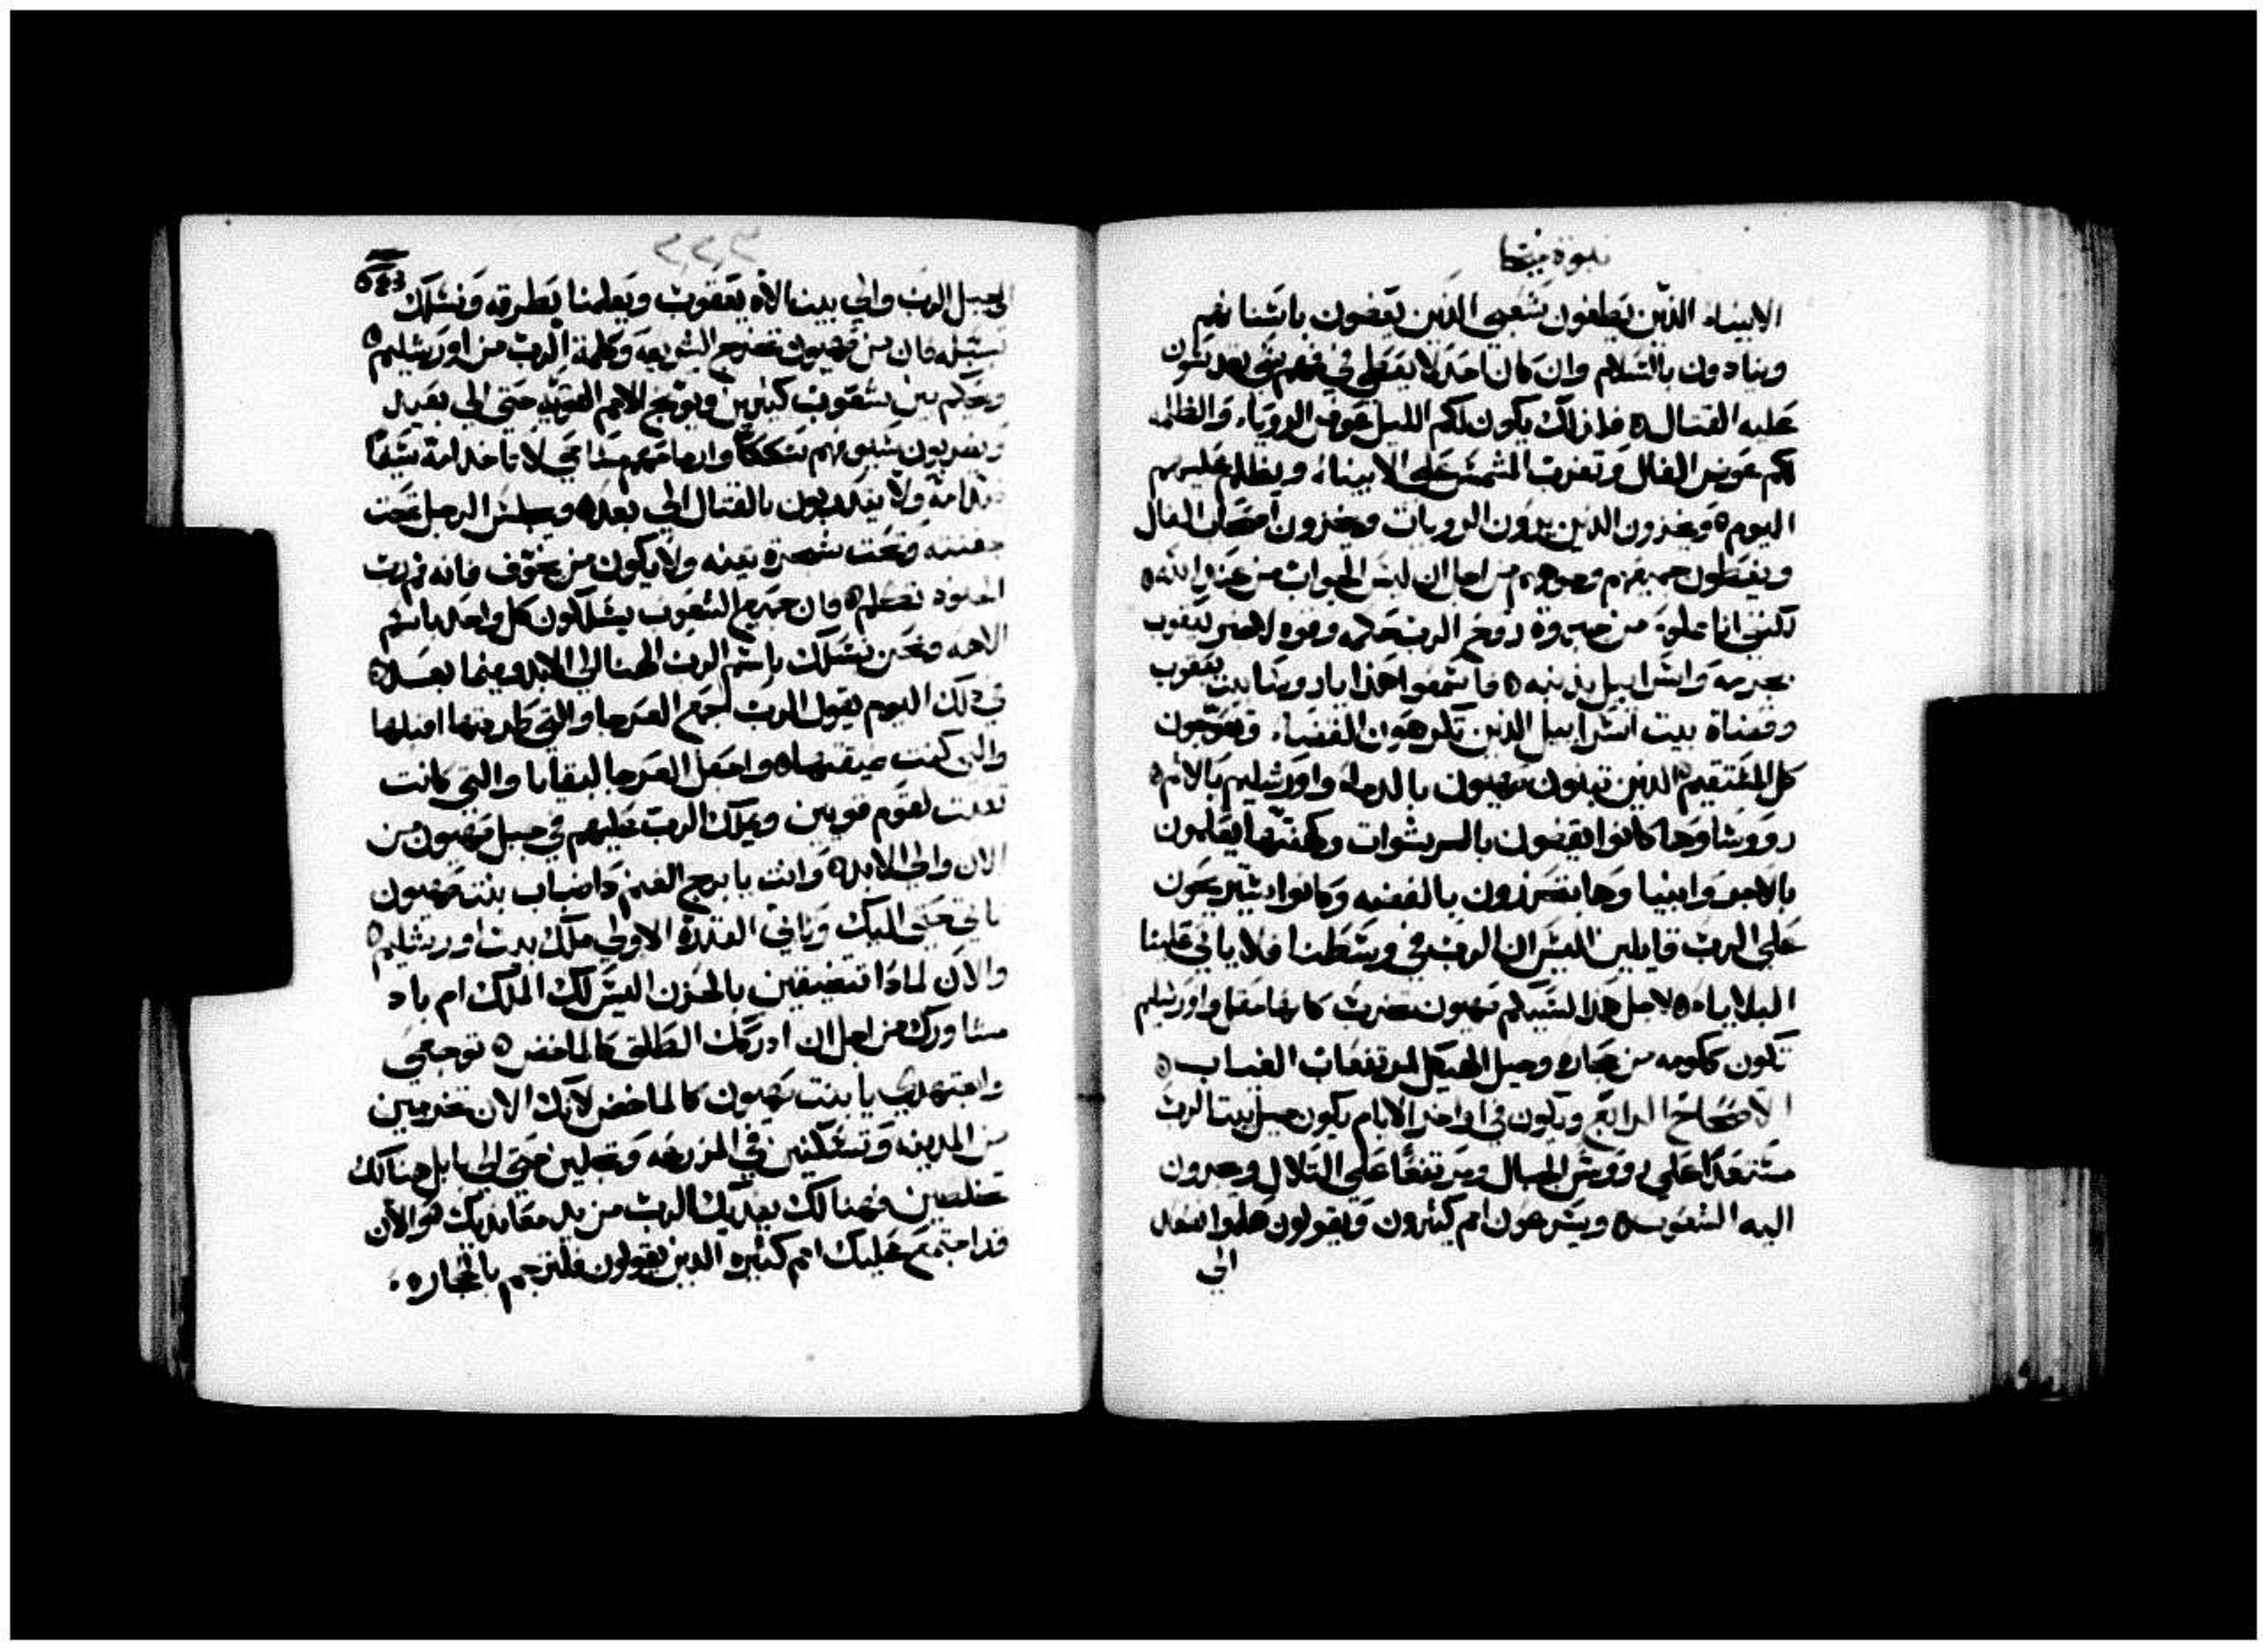 نبوة ميخا
الانبياء الذين يطغون شعبي الذين يعضون باسنانهم
وينادون بالسلام وان كان احد لا يعطي في فمهم شي يقدسون
عليه القتال ه فلذلك يكون لكم الليل عوض الروياء والظلمه
لكم عوض الفال وتغرب الشمس على الانبياء ويظلم عليهم
اليوم ه ويخزون الذين يرون الرويات ويخزون اصحاب الفال
ويغطون جميعهم وجوههم من اجل ان ليس الجواب من عند الله ه
لكنني انا مملوء من جبروة روح الرب حكم وقوه لاخبر يعقوب
بجرمه واسراييل بذنبه ه فاسمعوا هذا يا روسا بيت يعقوب
وقضاة بيت اسراييل الذين تكرهون القضاء وتعوجون
كل المستقيم الذين تبنون صهيون بالدما واورشليم بالاثم ه
رووساوها كانوا يقضون بالرشوات وكهنتها يعلمون
بالاجره وانبياوها يتحزرون بالفضه وكانوا يستريحون
على الرب قايلين اليس ان الرب في وسطنا فلا ياتي علينا
البلاياء ه لاجل هذا لسببكم صهيون تحرث كانها حقل واورشليم
تكون ككومه من حجاره وجبل الهيكل لمرتفعات الغياب ه
الاصحاح الرابع ويكون في اواخر الايام يكون جبل بيت الرب
مستعدا على رووس الجبال ومرتفعا على التلال ويجرون
اليه الشعوب ه ويسرعون امم كثيرون ويقولون هلموا نصعد
الي
٢٢٣
الى جبل الرب والى بيت الاه يعقوب ويعلمنا بطرقه ونسلك
سبله فان من صهيون تخرج الشريعه وكلمة الرب من اورشليم ه
ويحكم بين شعوب كثيرين ويوبخ الامم القويه حتى الى بعيد
ويضربون سيوفهم سككا وارماحهم مساحي لا تاخذ امة سيفا
ضد امة ولا يتدربون بالقتال الي بعد ه ويجلس الرجل تحت
جفنته وتحت شجرة تينه ولا يكون من يخوف فانه فم رب
الجنود تكلم ه فان جميع الشعوب يسلكون كل واحد باسم
الاهه ونحن نسلك باسم الرب الهنا الي الابد وفيما بعد ه
في ذلك اليوم يقول الرب اجمع العرجا والتي طردتها اقبلها
والتي كنت ضيقتها ه واجعل العرجا لبقايا والتي كانت
تعبت لقوم قويين ويملك الرب عليهم في جبل صهيون من
الان والى الابد ه وانت يا برج الغنم داضباب بنت صهيون
تاتي حتى اليك وياتي القدرة الاولى ملك بنت اورشليم ه
والان لماذا تتضيقين بالحزن اليس لك الملك ام باد
مشاورك من اجل ان ادركك الطلق كالماخض ه توجعي
واجتهدي يا بنت صهيون كالماخض لانك الان تخرجين
من المدينه وتسكنين في المزرعه وتجلين حتى الى بابل هنالك
تخلصين فهنالك يفديك الرب من يد معاديك ه والان
قد اجتمع عليك امم كثيره الذين يقولون فلترجم بالحجاره